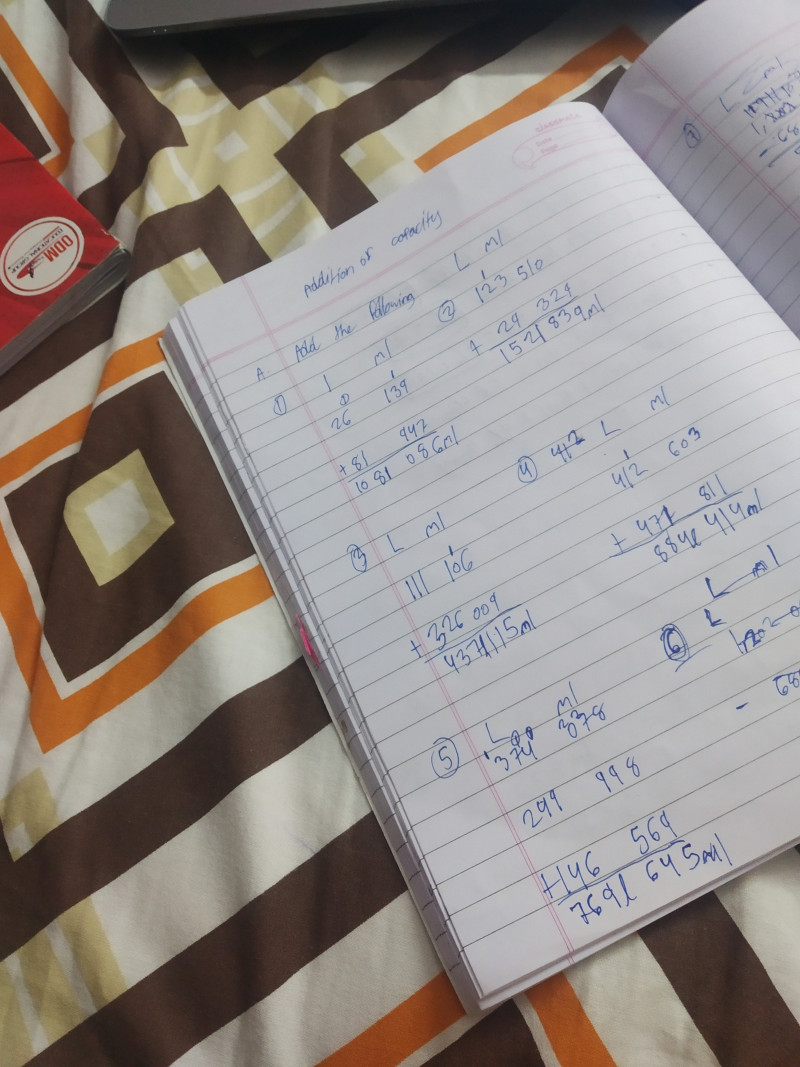 Addition of capacity
A. Add the following
① L ml
26 139
+ 81 947
108l 086ml
② L ml
123 510
+ 29 329
152l 839ml
③ L ml
111 106
+ 326 009
437l 115ml
④ L ml
412 603
+ 471 811
884l 414ml
⑤ L ml
374 378
299 998
+146 569
769l 645ml
⑥ L ml
L
⑦ L ml
ODM
EDUCATIONAL GROUP
classmate